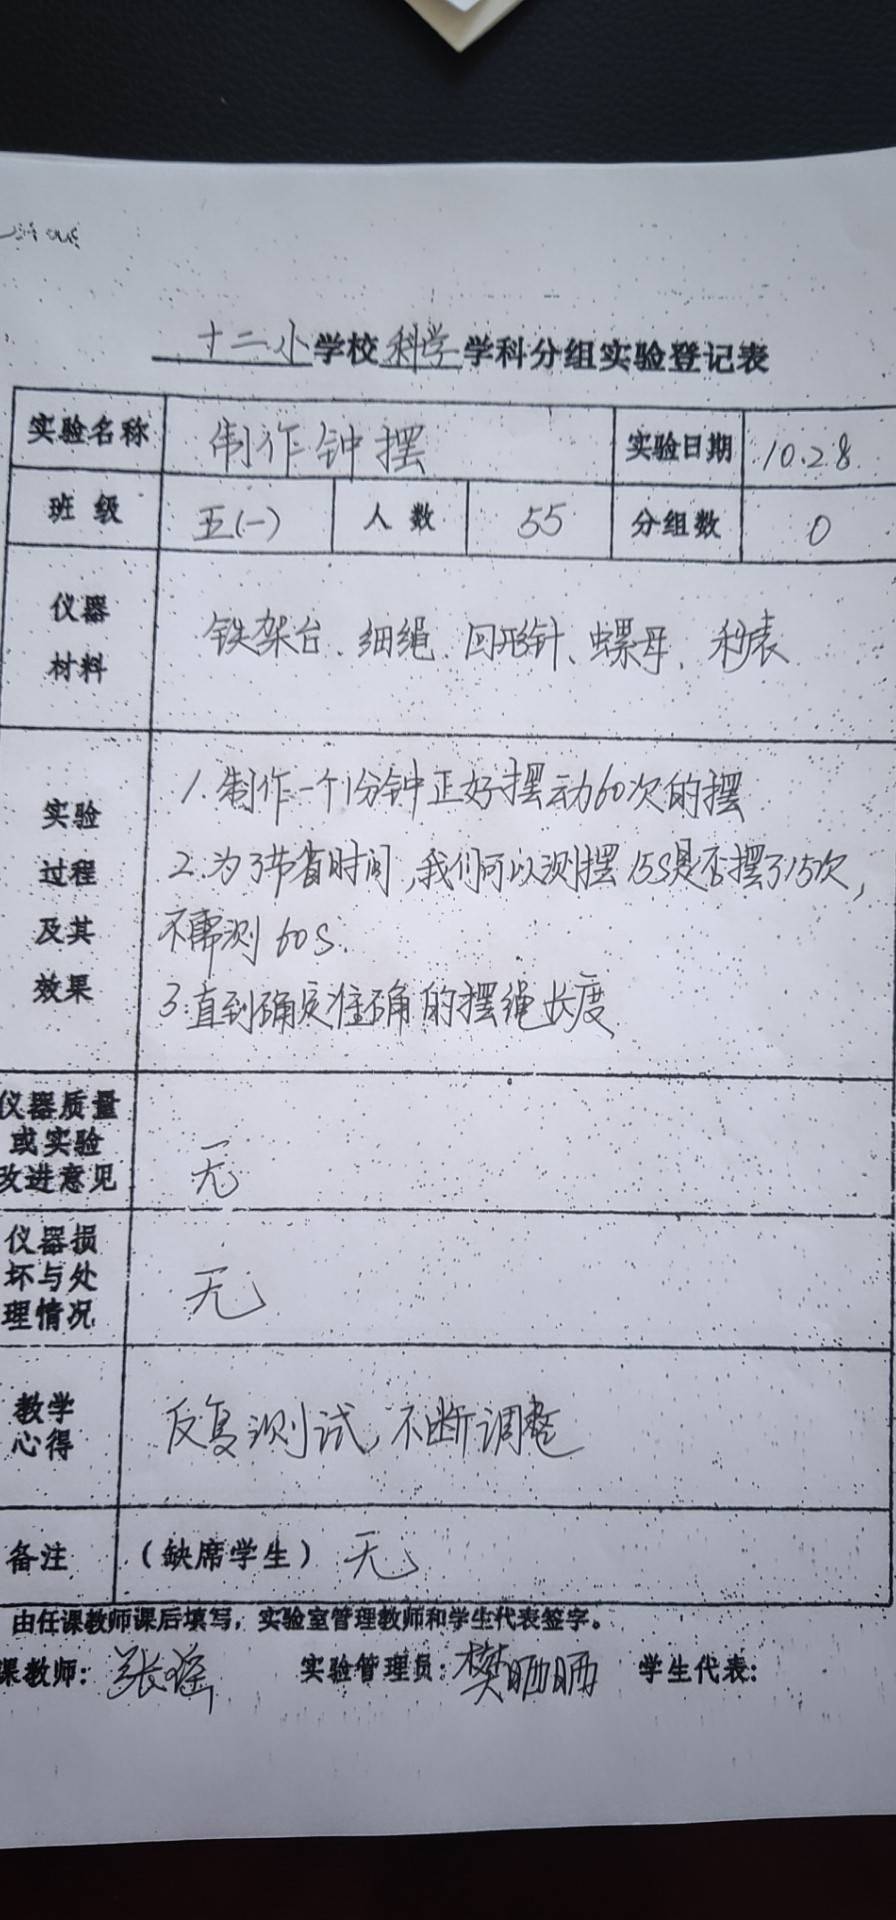 十二小学校科学学科分组实验登记表
实验名称 制作钟摆 实验日期 10.28
班级 五(一) 人数 55 分组数 0
仪器
材料
铁架台、细绳、回形针、螺母、秒表
实验
过程
及其
效果
1.制作一个1分钟正好摆动60次的摆
2.为了节省时间,我们可以测摆15s是否摆了15次,
不需测60s.
3.直到确定准确的摆绳长度
仪器质量
或实验
改进意见
无
仪器损
坏与处
理情况
无
教学
心得
反复测试,不断调整
备注 (缺席学生) 无
由任课教师课后填写,实验室管理教师和学生代表签字。
课教师: 张瑶 实验管理员: 樊晒晒 学生代表: